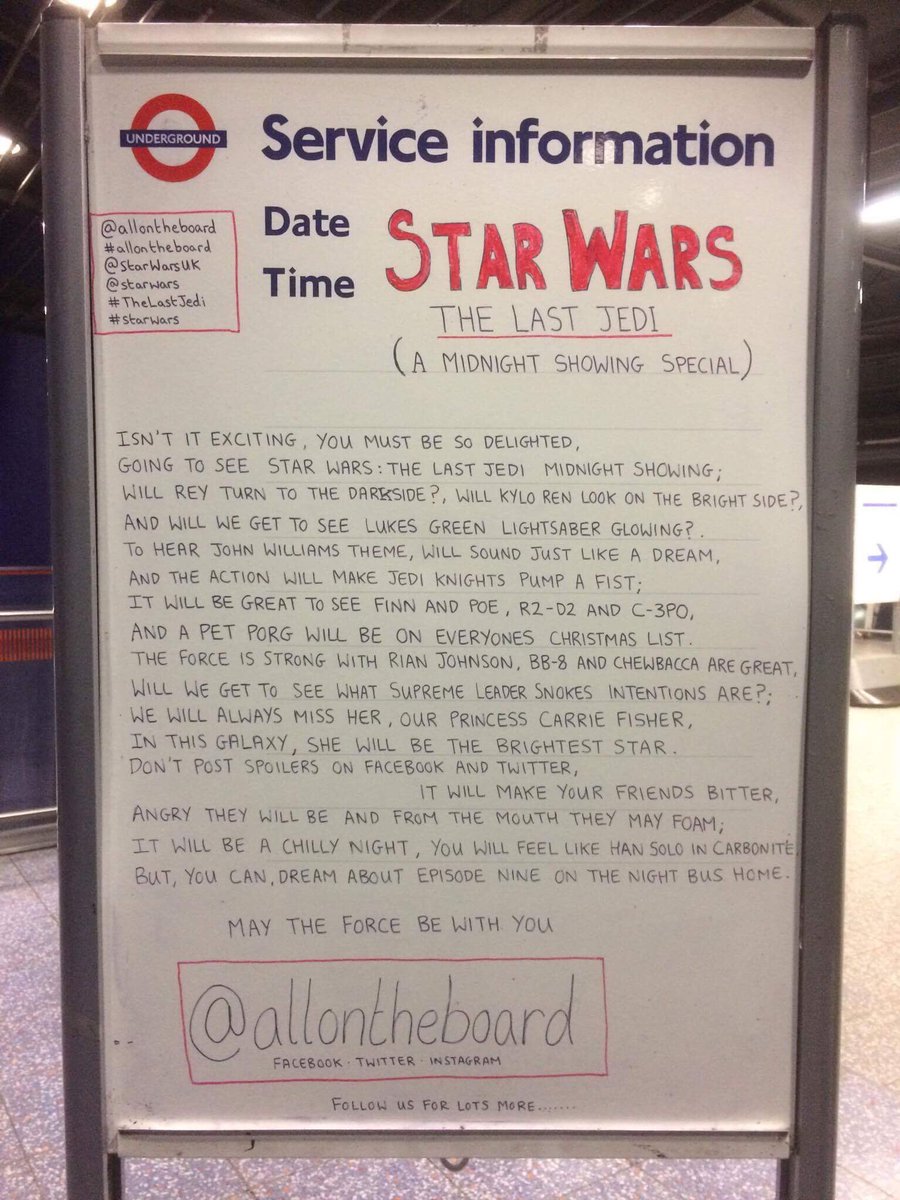 UNDERGROUND
Service information
Date
Time
STAR WARS
THE LAST JEDI
(A MIDNIGHT SHOWING SPECIAL)
@allontheboard
#allontheboard
@StarWarsUK
@starwars
#TheLastJedi
#starwars
ISN'T IT EXCITING, YOU MUST BE SO DELIGHTED,
GOING TO SEE STAR WARS: THE LAST JEDI MIDNIGHT SHOWING;
WILL REY TURN TO THE DARKSIDE?, WILL KYLO REN LOOK ON THE BRIGHT SIDE?,
AND WILL WE GET TO SEE LUKES GREEN LIGHTSABER GLOWING?.
TO HEAR JOHN WILLIAMS THEME, WILL SOUND JUST LIKE A DREAM,
AND THE ACTION WILL MAKE JEDI KNIGHTS PUMP A FIST;
IT WILL BE GREAT TO SEE FINN AND POE, R2-D2 AND C-3PO,
AND A PET PORG WILL BE ON EVERYONES CHRISTMAS LIST.
THE FORCE IS STRONG WITH RIAN JOHNSON, BB-8 AND CHEWBACCA ARE GREAT,
WILL WE GET TO SEE WHAT SUPREME LEADER SNOKES INTENTIONS ARE?;
WE WILL ALWAYS MISS HER, OUR PRINCESS CARRIE FISHER,
IN THIS GALAXY, SHE WILL BE THE BRIGHTEST STAR.
DON'T POST SPOILERS ON FACEBOOK AND TWITTER,
IT WILL MAKE YOUR FRIENDS BITTER,
ANGRY THEY WILL BE AND FROM THE MOUTH THEY MAY FOAM;
IT WILL BE A CHILLY NIGHT, YOU WILL FEEL LIKE HAN SOLO IN CARBONITE,
BUT, YOU CAN, DREAM ABOUT EPISODE NINE ON THE NIGHT BUS HOME.
MAY THE FORCE BE WITH YOU
@allontheboard
FACEBOOK · TWITTER · INSTAGRAM
FOLLOW US FOR LOTS MORE.......